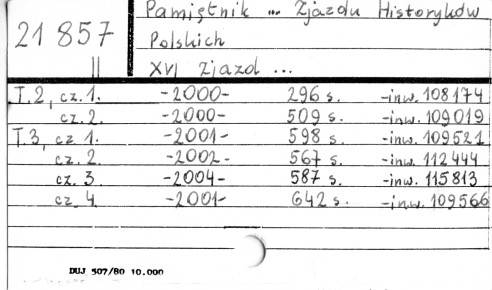 Pamiętnik ... Zjazdu Historyków
21 857
Polskich
II
XVI Zjazd ...
T.2, cz. 1. -2000- 296 s. -inw. 108174
cz. 2. -2000- 509 s. -inw. 109019
T.3, cz 1. -2001- 598 s. -inw. 109521
cz. 2. -2002- 567 s. -inw. 112444
cz. 3 -2004- 587 s. -inw. 115813
cz. 4. -2001- 642 s. -inw. 109566
DUJ 507/80 10.000